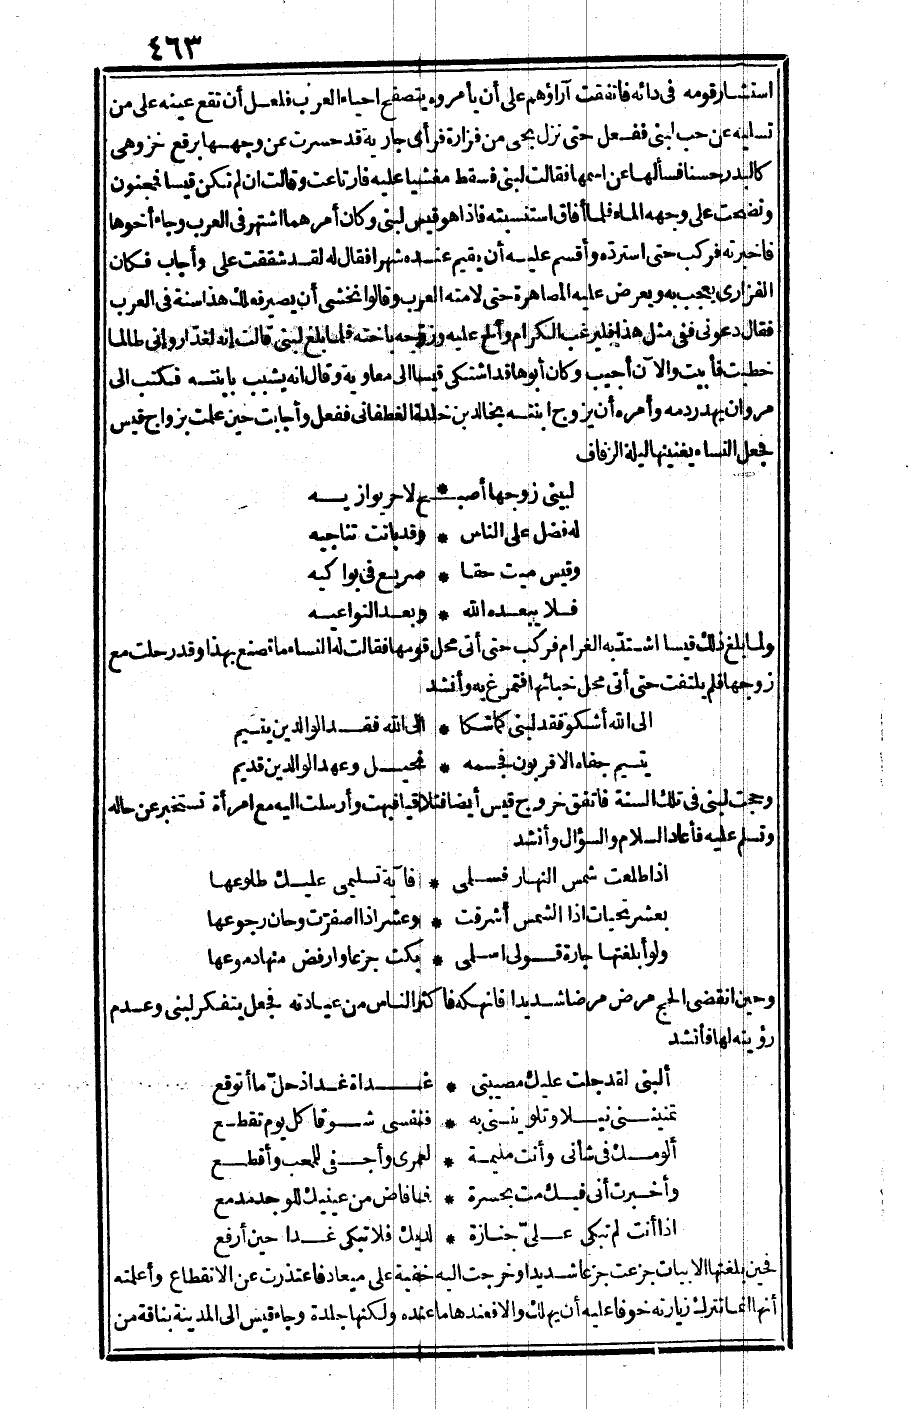 ٤٦٣
استشار قومه فى دائه فاتفقت آراؤهم على أن يأمروه يتصفح احياء العرب فلعل أن تقع عينه على من
تسليه عن حب لبنى ففعل حتى نزل بحى من فزارة فرأى جارية قد حسرت عن وجهها برقع خز وهى
كالبدر حسنا فسألها عن اسمها فقالت لبنى فسقط مغشيا عليه فارتاعت وقالت ان لم تكن قيسا فمجنون
ونضحت على وجهه الماء فلما أفاق استنسبته فاذا هو قيس لبنى وكان أمرهما اشتهر فى العرب وجاء أخوها
فاخبرته فركب حتى استرده وأقسم عليه أن يقيم عنده شهرا فقال له لقد شققت على وأجاب فكان
الفزارى يعجب به ويعرض عليه المصاهرة حتى لامته العرب وقالوا نخشى أن يصير فعلك هذا سنة فى العرب
فقال دعونى ففى مثل هذا فليرغب الكرام وألح عليه وزوجه باخته فلما بلغ لبنى قالت إنه لغدار وإنى طالما
خطبت فأبيت والآن أجيب وكان أبوها قد اشتكى قيسا الى معاوية وقال انه يشبب بابنته فكتب الى
مروان بهدر دمه وأمره أن يزوج ابنته بخالد بن خلدة الغطفانى ففعل وأجابت حين علمت بزواج قيس
فجعل النساء يغنينها ليلة الزفاف
لبينى زوجها أصبـ * ـح لا حر يوازيه
له فضل على الناس * وقد باتت تناجيه
وقيس ميت حقا * صريع فى بواكيه
فلا يبعده الله * وبعد النواعيه
ولما بلغ ذلك قيسا اشتد به الغرام فركب حتى أتى محل قومها فقالت له النساء ما تصنع بهذا وقد رحلت مع
زوجها فلم يلتفت حتى أتى محل خبائها فتمرغ به وأنشد
الى الله أشكو فقد لبنى كما شكا * الى الله فقد الوالدين يتيم
يتيم جفاه الاقربون فجسمه * نحيل وعهد الوالدين قديم
وحجت لبنى فى تلك السنة فاتفق خروج قيس أيضا فتلاقيا فبهت وأرسلت اليه مع امرأة تستخبر عن حاله
وتسلم عليه فأعاد السلام والسؤال وأنشد
اذا طلعت شمس النهار فسلمى * فآية تسليمى عليك طلوعها
بعشر تحيات اذا الشمس أشرقت * وعشر اذا اصفرت وحان رجوعها
ولو أبلغتها جارة قولى اسلمى * بكت جزعا وارفض منها دموعها
وحين انقضى الحج مرض مرضا شديدا فانهكه فاكثر الناس من عيادته فجعل يتفكر لبنى وعدم
رؤيته لها فأنشد
ألبنى لقد جلت عليك مصيبتى * غداة غد اذ حل ما أتوقع
تمنيننى نيلا وتلويننى به * فنفسى شوقا كل يوم تقطع
ألومك فى شأنى وأنت مليمة * لعمرى وأجفى للمحب وأقطع
وأخبرت أنى فيك مت بحسرة * فما فاض من عينيك للوجد مدمع
اذا أنت لم تبكى على جنازة * لديك فلا تبكى غدا حين أرفع
فحين بلغتها الابيات جزعت جزعا شديدا وخرجت اليه خفية على ميعاد فاعتذرت عن الانقطاع وأعلمته
أنها انما تترك زيارته خوفا عليه أن يهلك والا فعندها ما عنده ولكنها جلدة وجاء قيس الى المدينة بناقة من